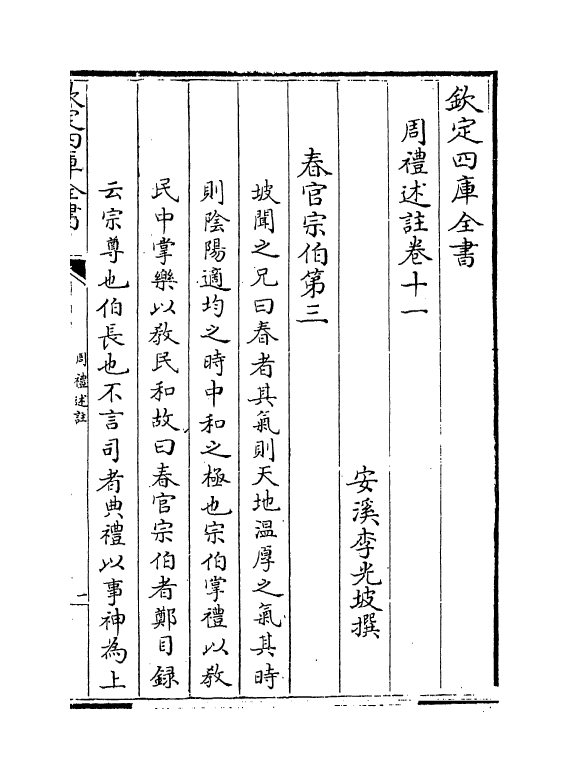 欽定四庫全書
周禮述註卷十一
安溪李光坡撰
春官宗伯第三
坡聞之兄曰春者其氣則天地温厚之氣其時
則陰陽適均之時中和之極也宗伯掌禮以敎
民中掌樂以敎民和故曰春官宗伯者鄭目録
云宗尊也伯長也不言司者典禮以事神為上
欽定四庫全書
周禮述註